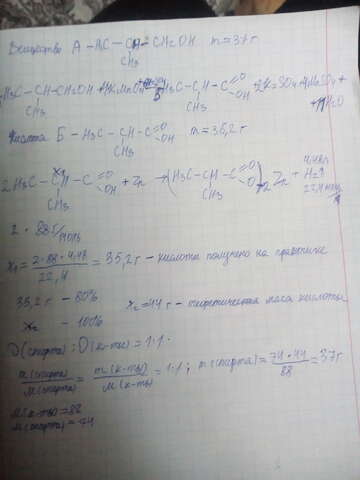 Вещество А - H₃C - CH - CH₂OH m = 37г
CH₃
H₃C - CH - CH₂OH + KMnO₄ + H₃C - CH - C O OH + 2K₂SO₄ + 4MnSO₄ +
CH₃ CH₃
+ 11H₂O
Кислота Б - H₃C - CH - C O OH m = 35,2г
CH₃
2H₃C - CH - C O OH + Zn → (H₃C - CH - C O O)₂ Zn + H₂↑
CH₃ CH₃
4,48л
22,4 л/моль
2 · 88 г/моль
x₁ = 2 · 88 · 4,48 / 22,4 = 35,2г - кислоты получено на практике
35,2г - 80%
x₂ - 100%
x₂ = 44г - теоретическая маса кислоты
(спирта) : (к-ты) = 1:1
m(спирта) / M(спирта) = m(к-ты) / M(к-ты) = 1:1; m(спирта) = 74 · 44 / 88 = 37г
M(к-ты) = 88
M(спирта) = 74